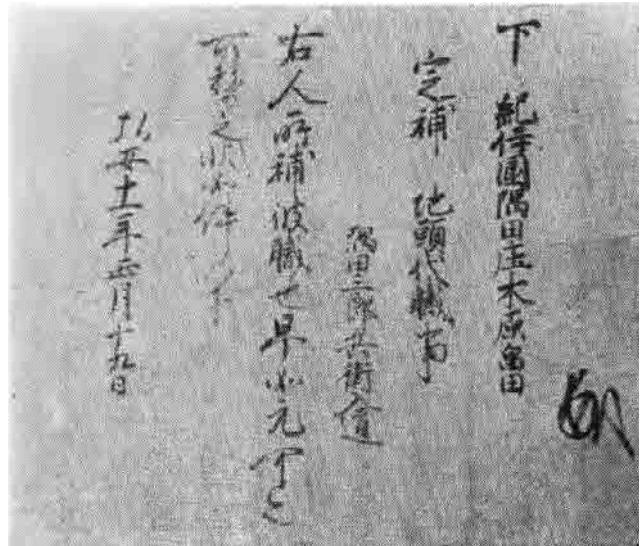 下 紀伊國隅田庄木原畠田
定補 地頭代職事
隅田郎兵衛
右人所補彼職也早如元
可之状如件以下
弘安十一年正月十九日